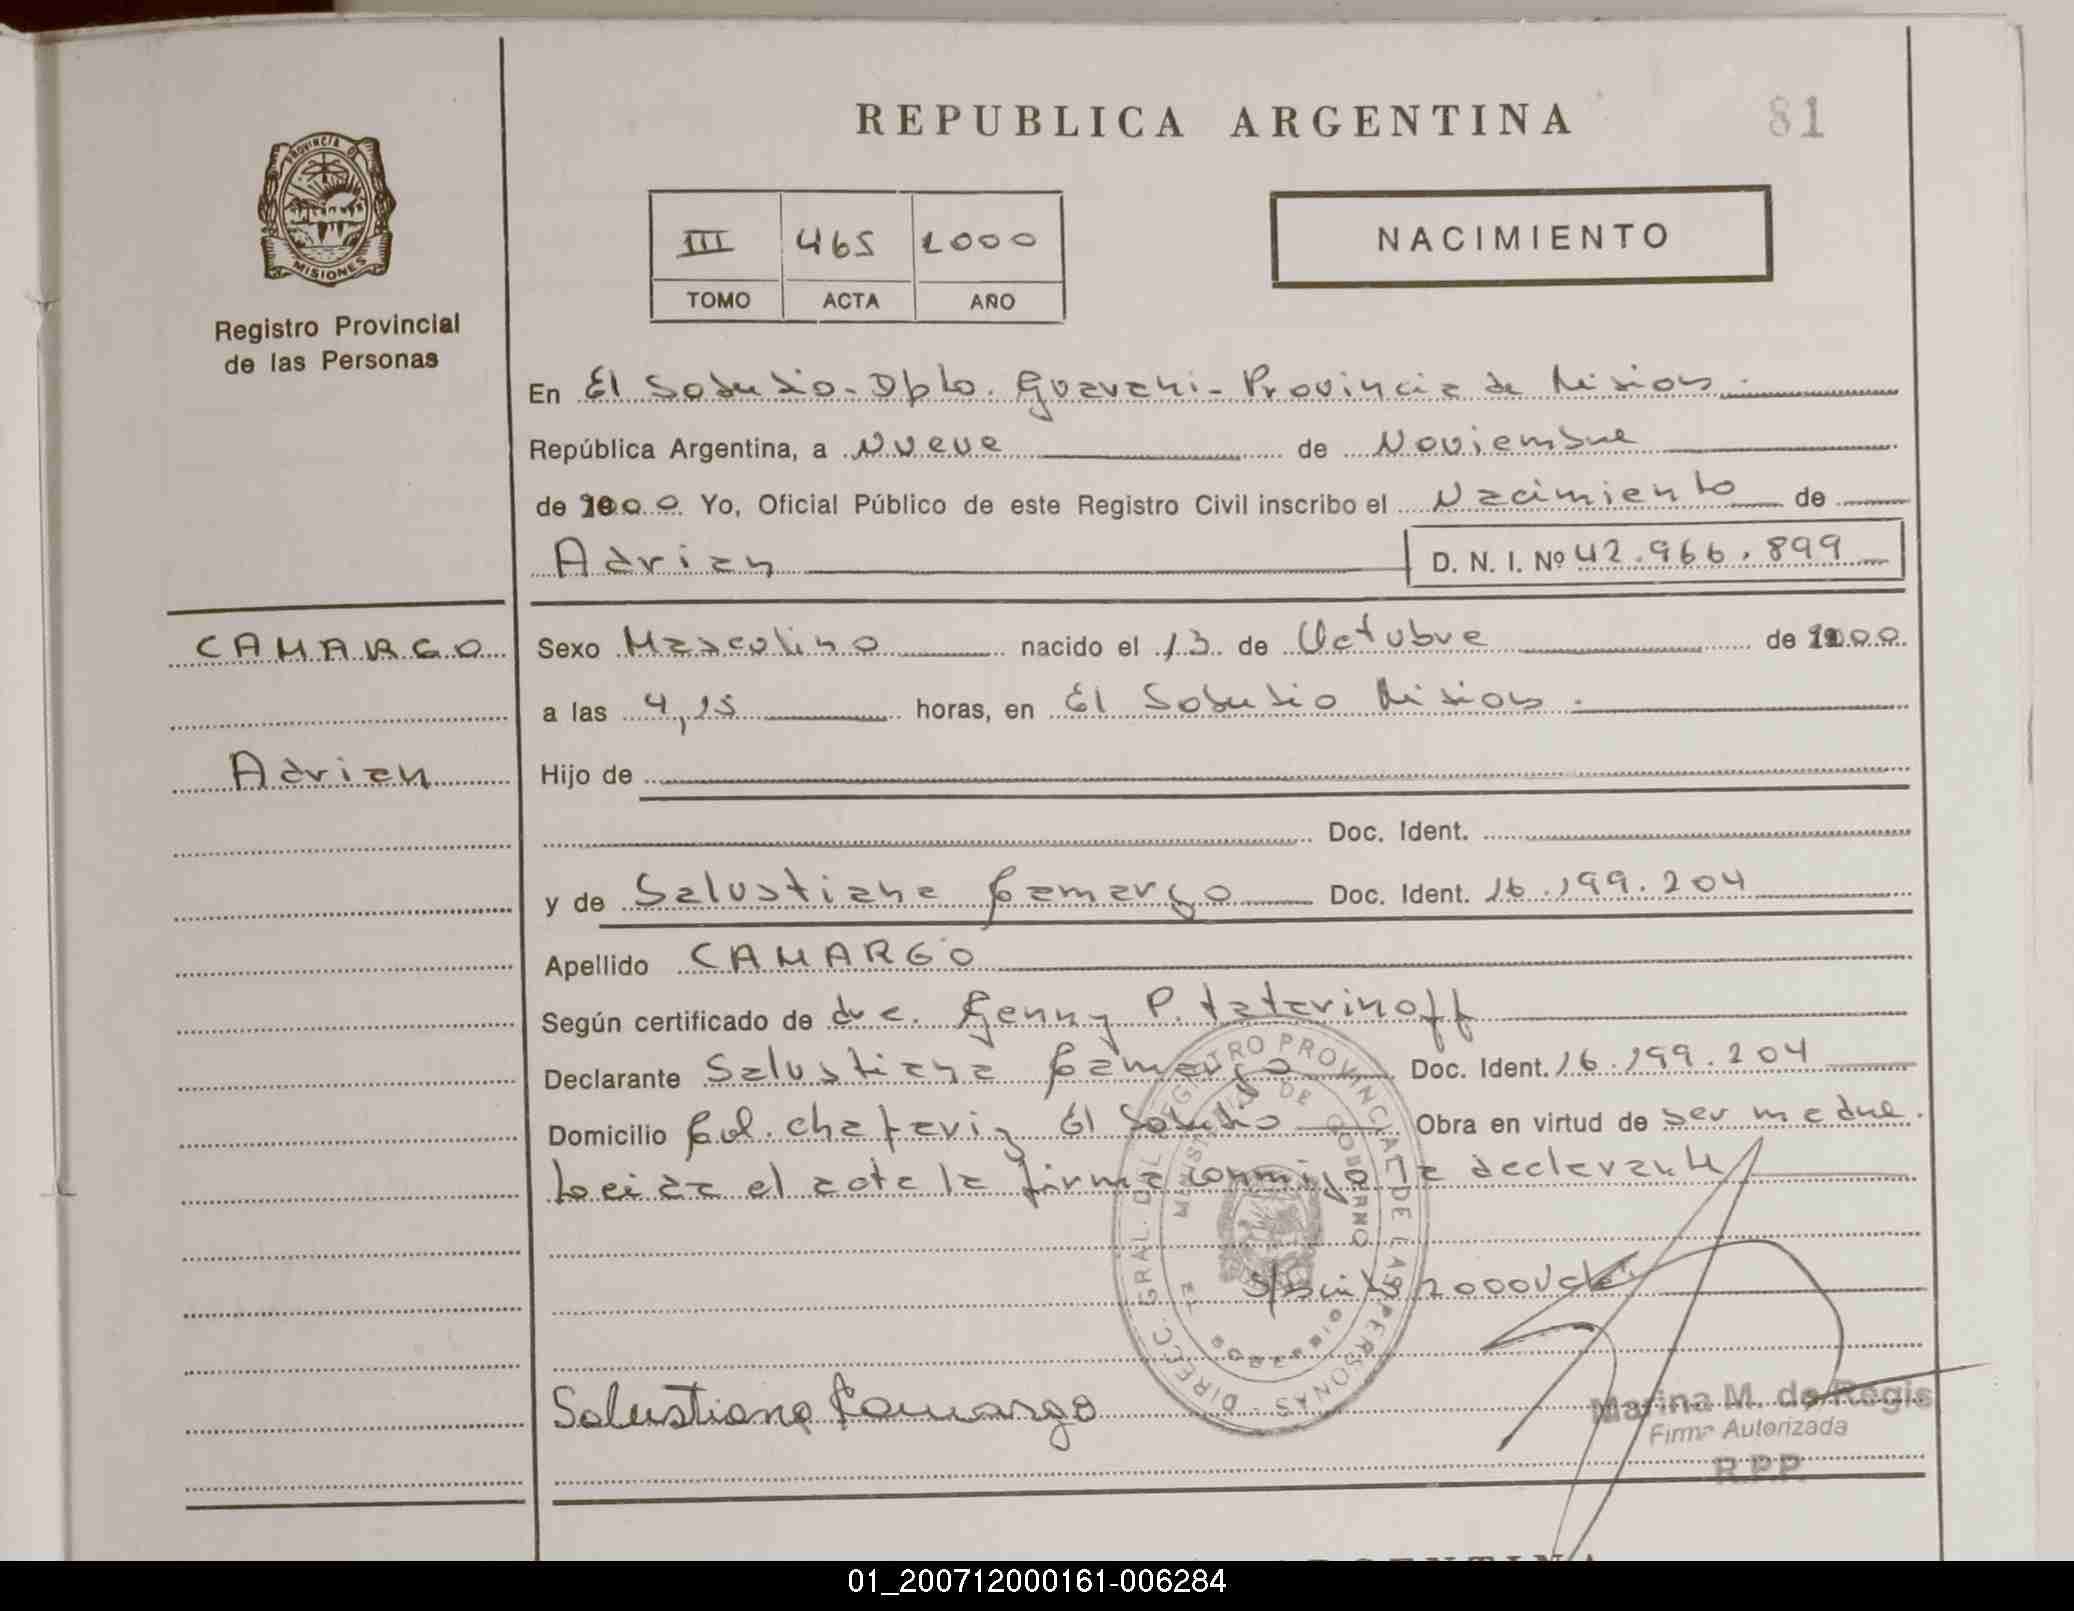 REPUBLICA ARGENTINA
81
PROVINCIA DE
MISIONES
Registro Provincial
de las Personas
III 465 2000
TOMO ACTA AÑO
NACIMIENTO
En El Soberbio - Dpto. Guarani - Provincia de Misiones
República Argentina, a Nueve de Noviembre
de 2000 Yo, Oficial Público de este Registro Civil inscribo el Nacimiento de
Adrian D. N. I. Nº 42.966.899
CAMARGO
Sexo Masculino nacido el 13 de Octubre de 2000
a las 4,15 horas, en El Soberbio Misiones.
Adrian
Hijo de
Doc. Ident.
y de Salustiana Camargo Doc. Ident. 16.199.204
Apellido CAMARGO
Según certificado de dra. Genny P. Tatarinoff
Declarante Salustiana Camargo Doc. Ident. 16.199.204
Domicilio Col. Chafariz El Soberbio Obra en virtud de ser madre.
Leida el acta la firma conmigo la declarante
2000 Vale
DIRECC. GRAL. DEL REGISTRO PROVINCIAL DE LAS PERSONAS
MINISTERIO DE GOBIERNO
Salustiana Camargo
Marina M. de Regis
Firma Autorizada
R.P.P.
ARGENTINA
01_200712000161-006284